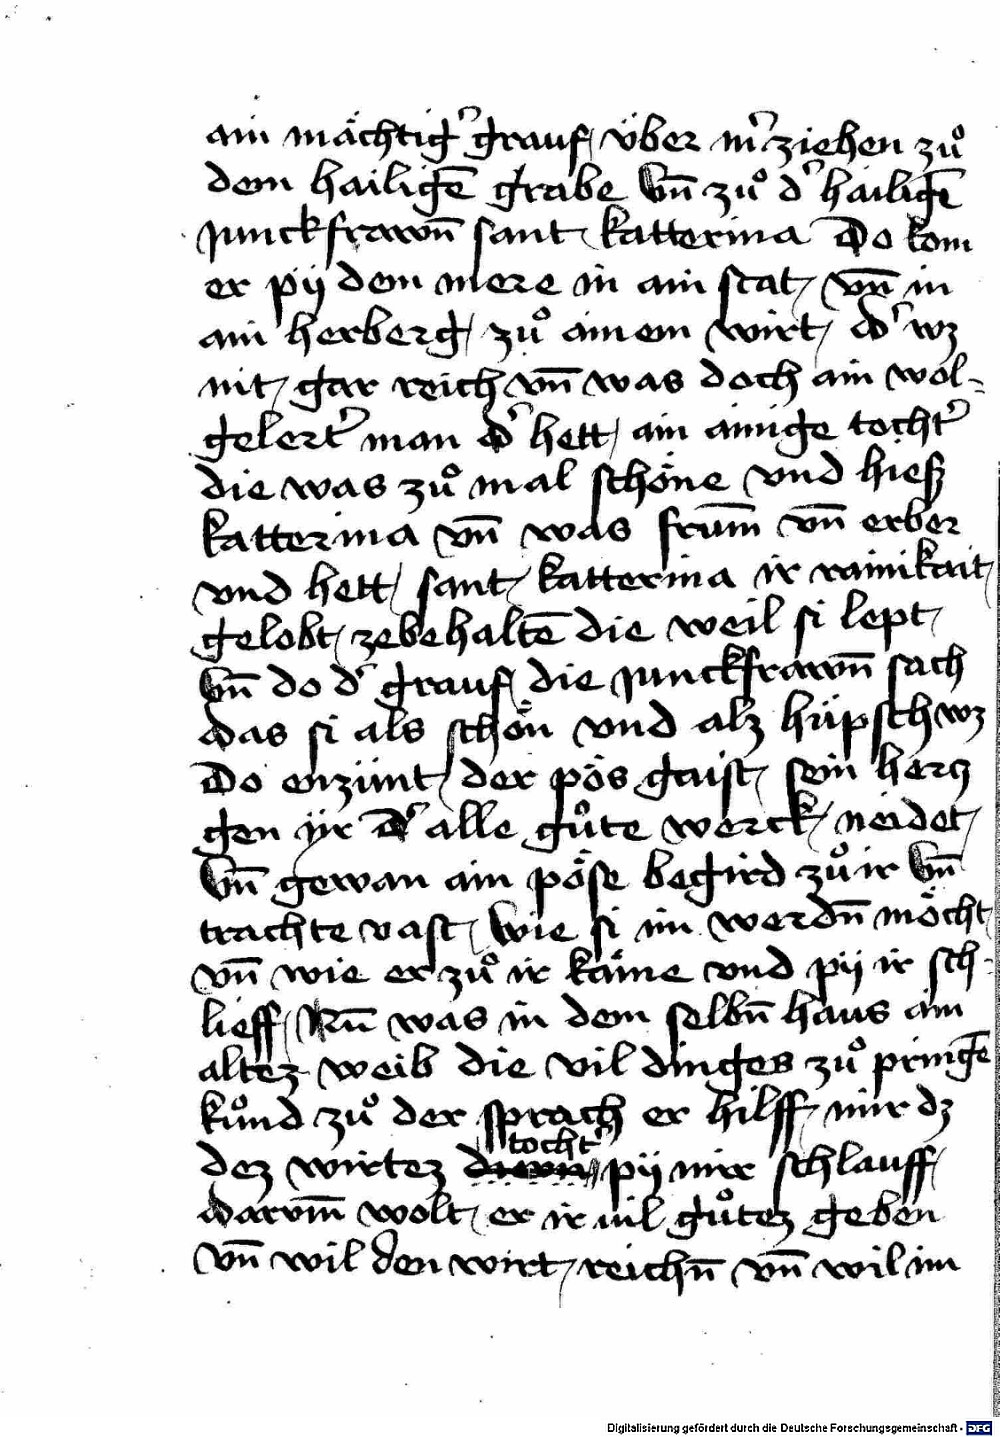 ain mächtig' grauf über m'ziehen zů
dem hailigē grabe vn̄ zů d' hailigē
junckfrawn̄ sant katterina Do kom
er pÿ dem mere in ain stat vn̄ in
ain herberg zů ainem wirt d' wz
nit gar reich vn̄ was doch ain wol-
gelert' man d' hett ain ainige tocht'
die was zů mal schöne vnd hieß
katterina vn̄ was frum̄ vn̄ erber
vnd hett sant katterina ir rainikait
gelobt zebehaltē die weil si lept
vn̄ do d' grauf die junckfrawn̄ sach
das si als schön vnd alz hüpsch wz
Do enzünt der pös gaist sein hercz
gen ÿr d' alle gůte werck neidet
vn̄ gewan ain pöse begird zů ir vn̄
trachte vast wie si im werdn̄ möcht
vn̄ wie er zů ir käme vnd pÿ ir sch-
lieff Nun̄ was in dem selbn̄ haus ain
altez weib die vil dinges zů pringē
kůnd zů der sprach er hilff mir dz
dez wirtez tocht' pÿ mir schlauff
darvm̄ wolt er ir vil gůtez geben
vn̄ wil den wirt reichn̄ vn̄ wil im
Digitalisierung gefördert durch die Deutsche Forschungsgemeinschaft - DFG